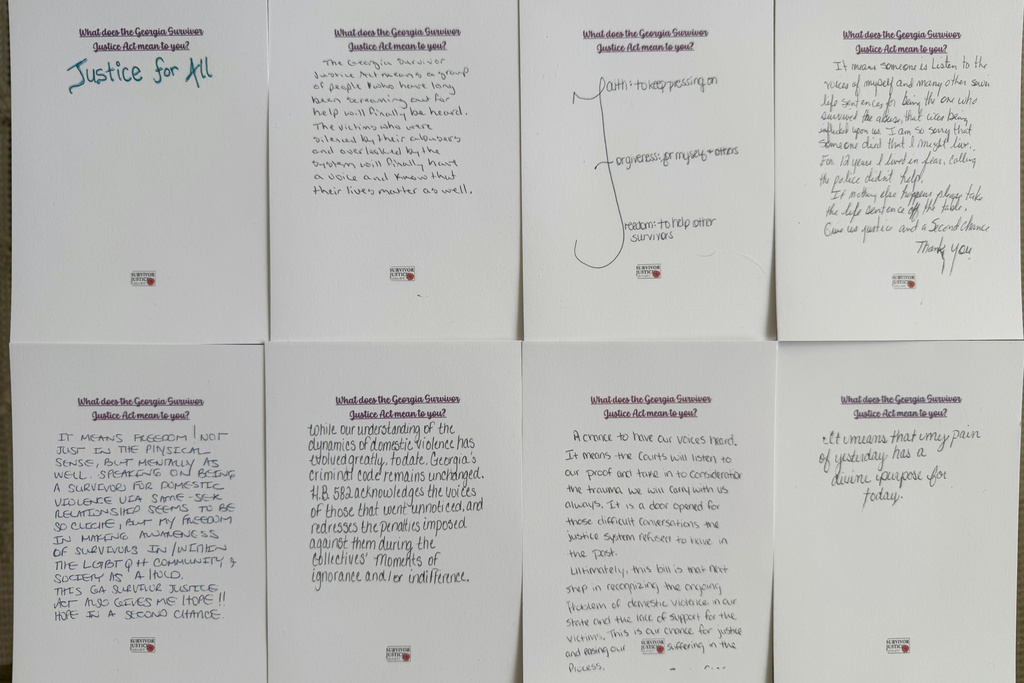 What does the Georgia Survivor
Justice Act mean to you?
Justice for All
SURVIVOR
JUSTICE
What does the Georgia Survivor
Justice Act mean to you?
The Georgia Survivor
Justice Act means a group
of people who have long
been screaming out for
help will finally be heard.
The victims who were
silenced by their abusers
and overlooked by the
system will finally have
a voice and know that
their lives matter as well.
SURVIVOR
JUSTICE
What does the Georgia Survivor
Justice Act mean to you?
Faith: to keep pressing on
Forgiveness: for myself + others
Freedom: to help other
survivors
SURVIVOR
JUSTICE
What does the Georgia Survivor
Justice Act mean to you?
It means someone is listen to the
voices of myself and many other
life sentences for being the one who
survived the abuse, that was being
inflicted upon us. I am so sorry that
someone died that I might live.
For 12 years I lived in fear, calling
the police didn't help.
If nothing else happens please take
the life sentence off the table.
Give us justice and a Second Chance
Thank you
SURVIVOR
JUSTICE
What does the Georgia Survivor
Justice Act mean to you?
IT MEANS FREEDOM! NOT
JUST IN THE PHYSICAL
SENSE, BUT MENTALLY AS
WELL. SPEAKING ON BEING
A SURVIVOR FOR DOMESTIC
VIOLENCE VIA SAME-SEX
RELATIONSHIP SEEMS TO BE
SO CLICHE, BUT MY FREEDOM
IN MAKING AWARENESS
OF SURVIVORS IN/WITHIN
THE LGBTQ++ COMMUNITY &
SOCIETY AS A HOLD.
THIS GA SURVIVOR JUSTICE
ACT ALSO GIVES ME HOPE!!
HOPE IN A SECOND CHANCE.
SURVIVOR
JUSTICE
What does the Georgia Survivor
Justice Act mean to you?
While our understanding of the
dynamics of domestic violence has
evolved greatly, to date, Georgia's
criminal code remains unchanged.
H.B. 582 acknowledges the voices
of those that went unnoticed, and
redresses the penalties imposed
against them during the
collectives' moments of
ignorance and/or indifference.
SURVIVOR
JUSTICE
What does the Georgia Survivor
Justice Act mean to you?
A chance to have our voices heard.
It means the Courts will listen to
our proof and take in to consideration
the trauma we will carry with us
always. It is a door opened for
those difficult conversations the
justice system refused to have in
the past.
Ultimately, this bill is that next
step in recognizing the ongoing
problem of domestic violence in our
state and the lack of support for the
victims. This is our chance for justice
and easing our suffering in the
process.
SURVIVOR
JUSTICE
What does the Georgia Survivor
Justice Act mean to you?
It means that my pain
of yesterday has a
divine purpose for
today.
SURVIVOR
JUSTICE